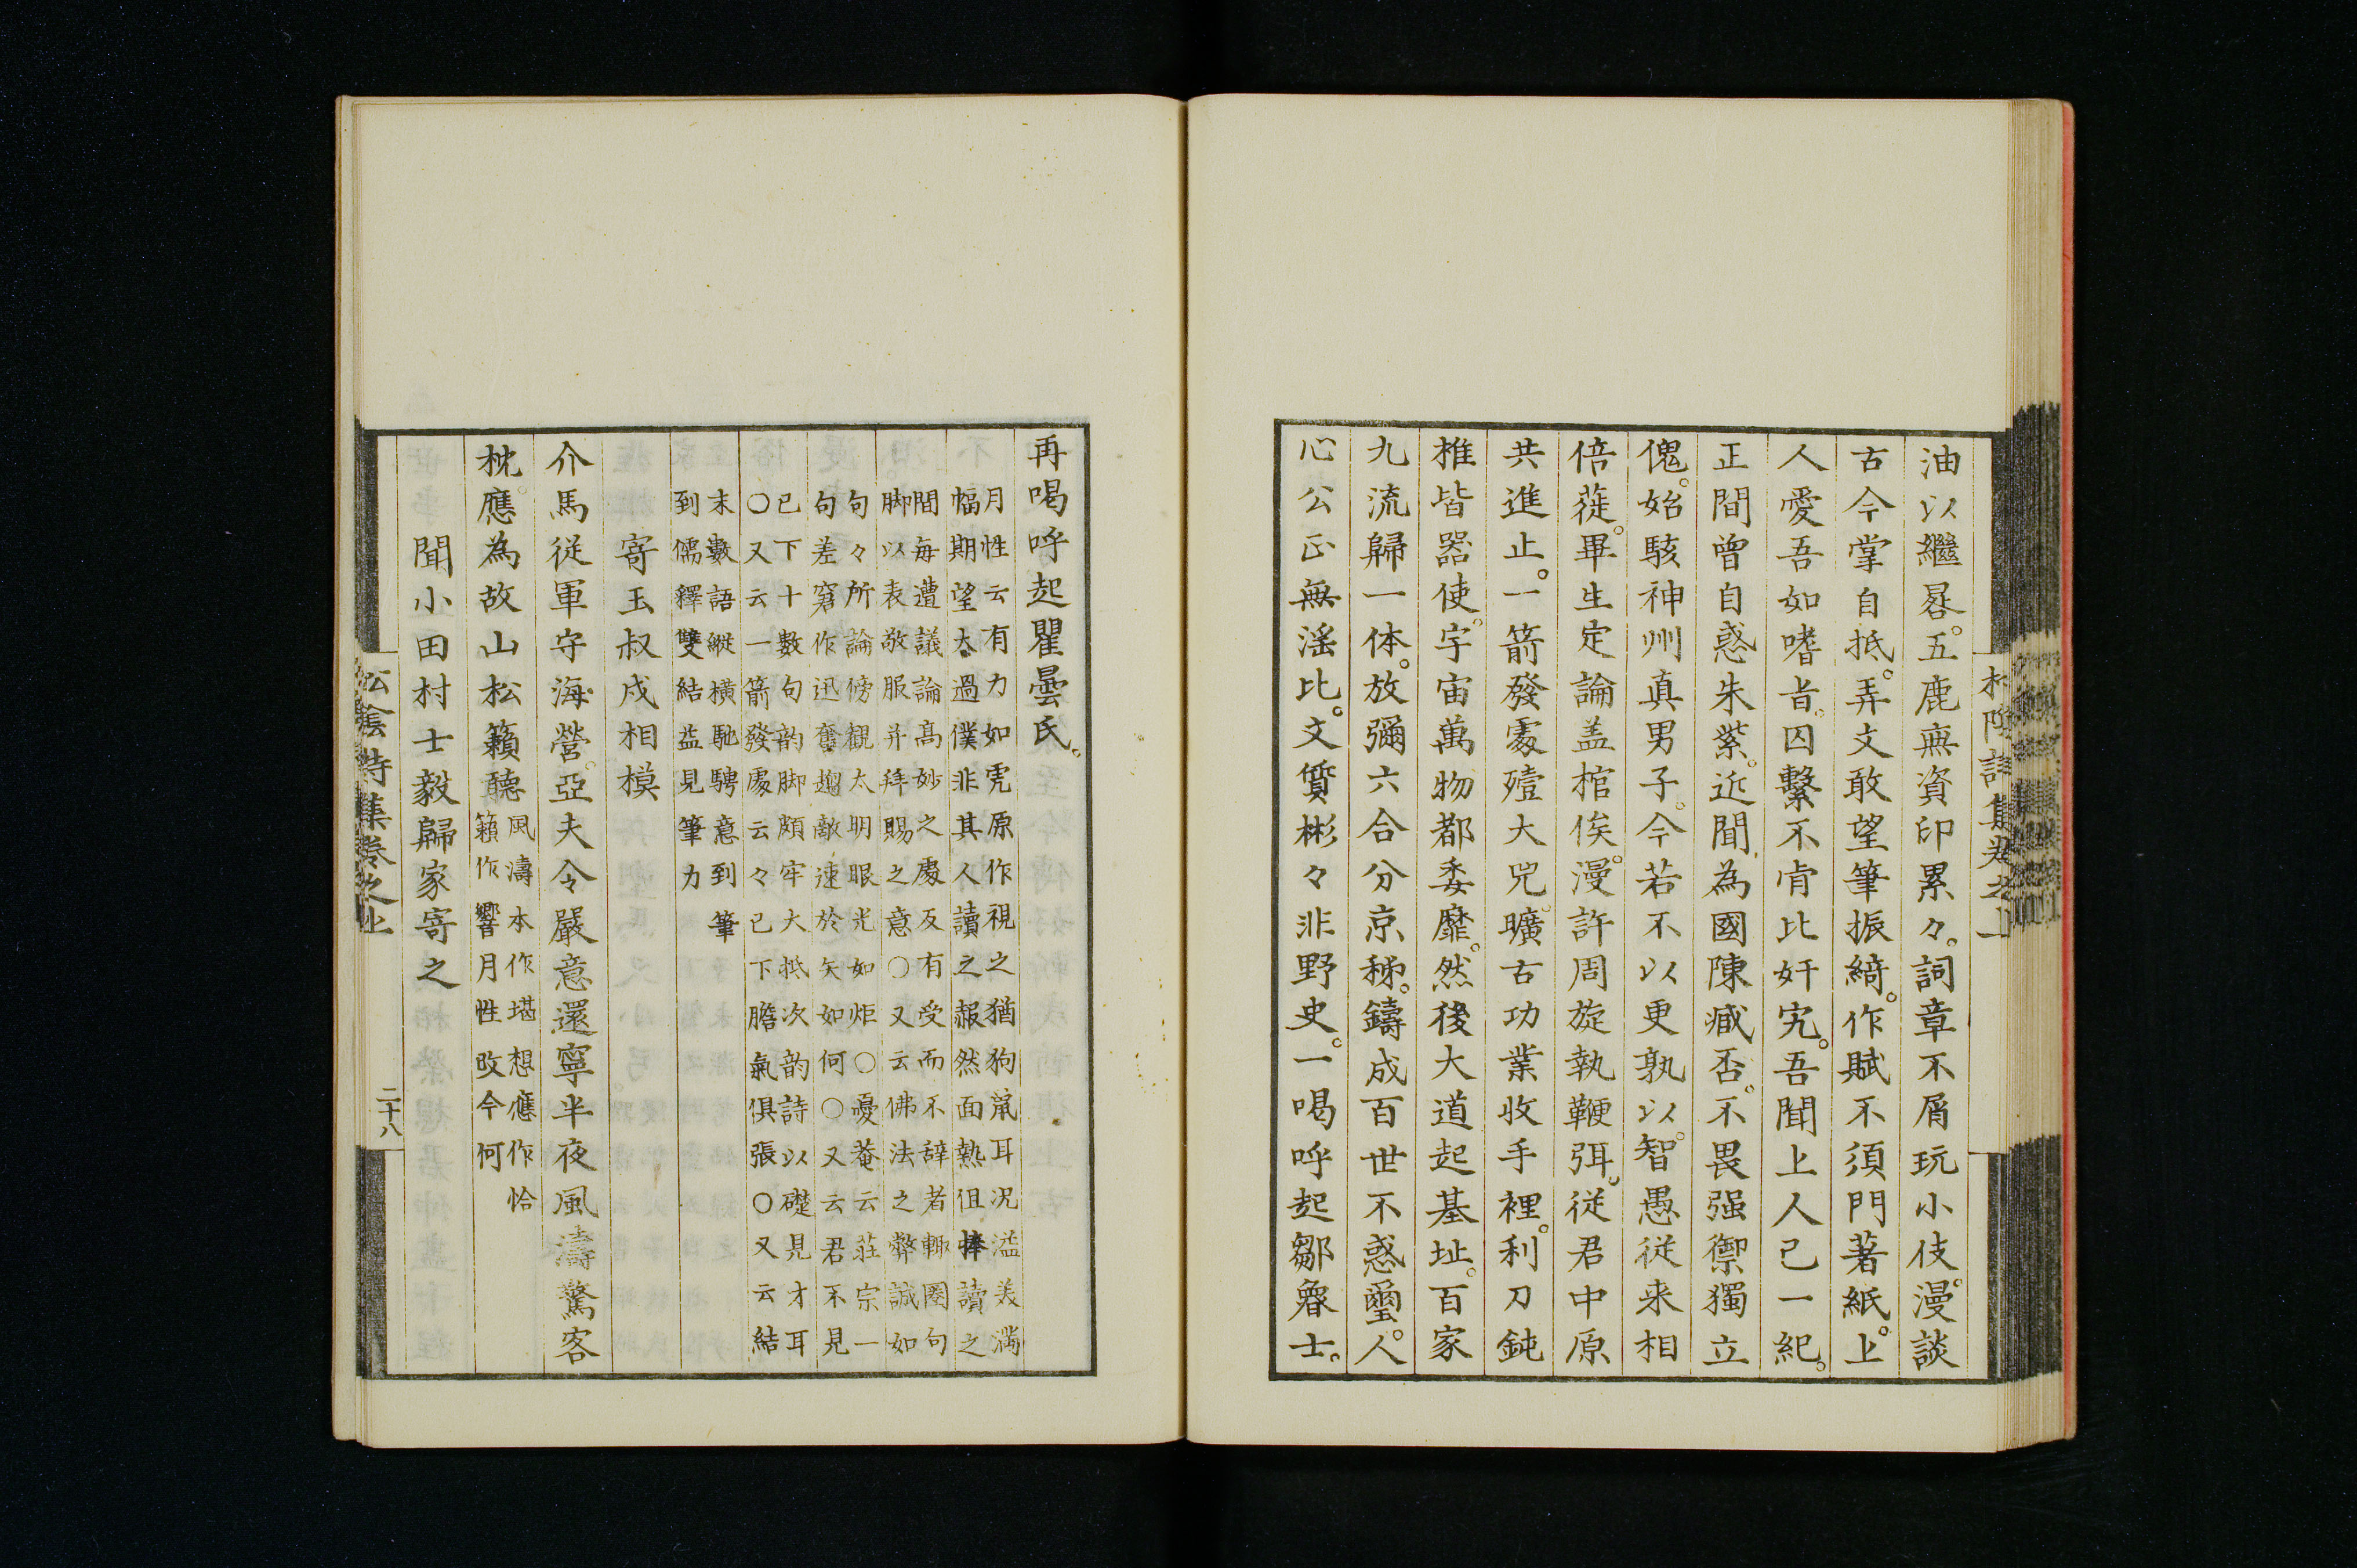 油以繼晷。五鹿無資印累々。詞章不屑玩小伎。漫談
古今掌自抵。弄文敢望筆振綺。作賦不須門著紙。上
人愛吾如嗜旨。囚繫不肯比奸宄。吾聞上人已一紀。
正間曾自惑朱紫。近聞為國陳臧否。不畏强禦獨立
傀。始駭神州真男子。今若不以更孰以。智愚從来相
倍蓰。畢生定論盖棺俟。漫許周旋執鞭弭。從君中原
共進止。一箭發處殪大兕。曠古功業收手裡。利刀鈍
椎皆器使。宇宙萬物都委靡。然後大道起基址。百家
九流歸一体。放彌六合分京秭。鑄成百世不惑璽。人
心公正無滛比。文質彬々非野史。一喝呼起鄒魯士。
再喝呼起瞿曇氏。
月性云有力如虎原作視之猶狗鼠耳况溢美満
幅期望太過僕非其人讀之赧然面熱但捧讀之
間毎遭議論高妙之處反有受而不辞者輙圏句
脚以表敬服并拜賜之意〇又云佛法之弊誠如
句々所論傍觀太明眼光如炬〇憂菴云荘宗一
句差窘作迅奮趨敵速於矢如何〇又云君不見
已下十數句韵脚頗牢大抵次韵詩以礎見才耳
〇又云一箭發處云々已下膽氣俱張〇又云結
末數語縱橫馳騁意到筆
到儒釋雙結益見筆力
寄玉叔戍相模
介馬從軍守海營。亞夫令嚴意還寧半夜風濤驚客
枕。應為故山松籟聽
風濤本作堪想應作恰
籟作響月性改今何
聞小田村士毅歸家寄之
松陰詩集卷之上
二十八